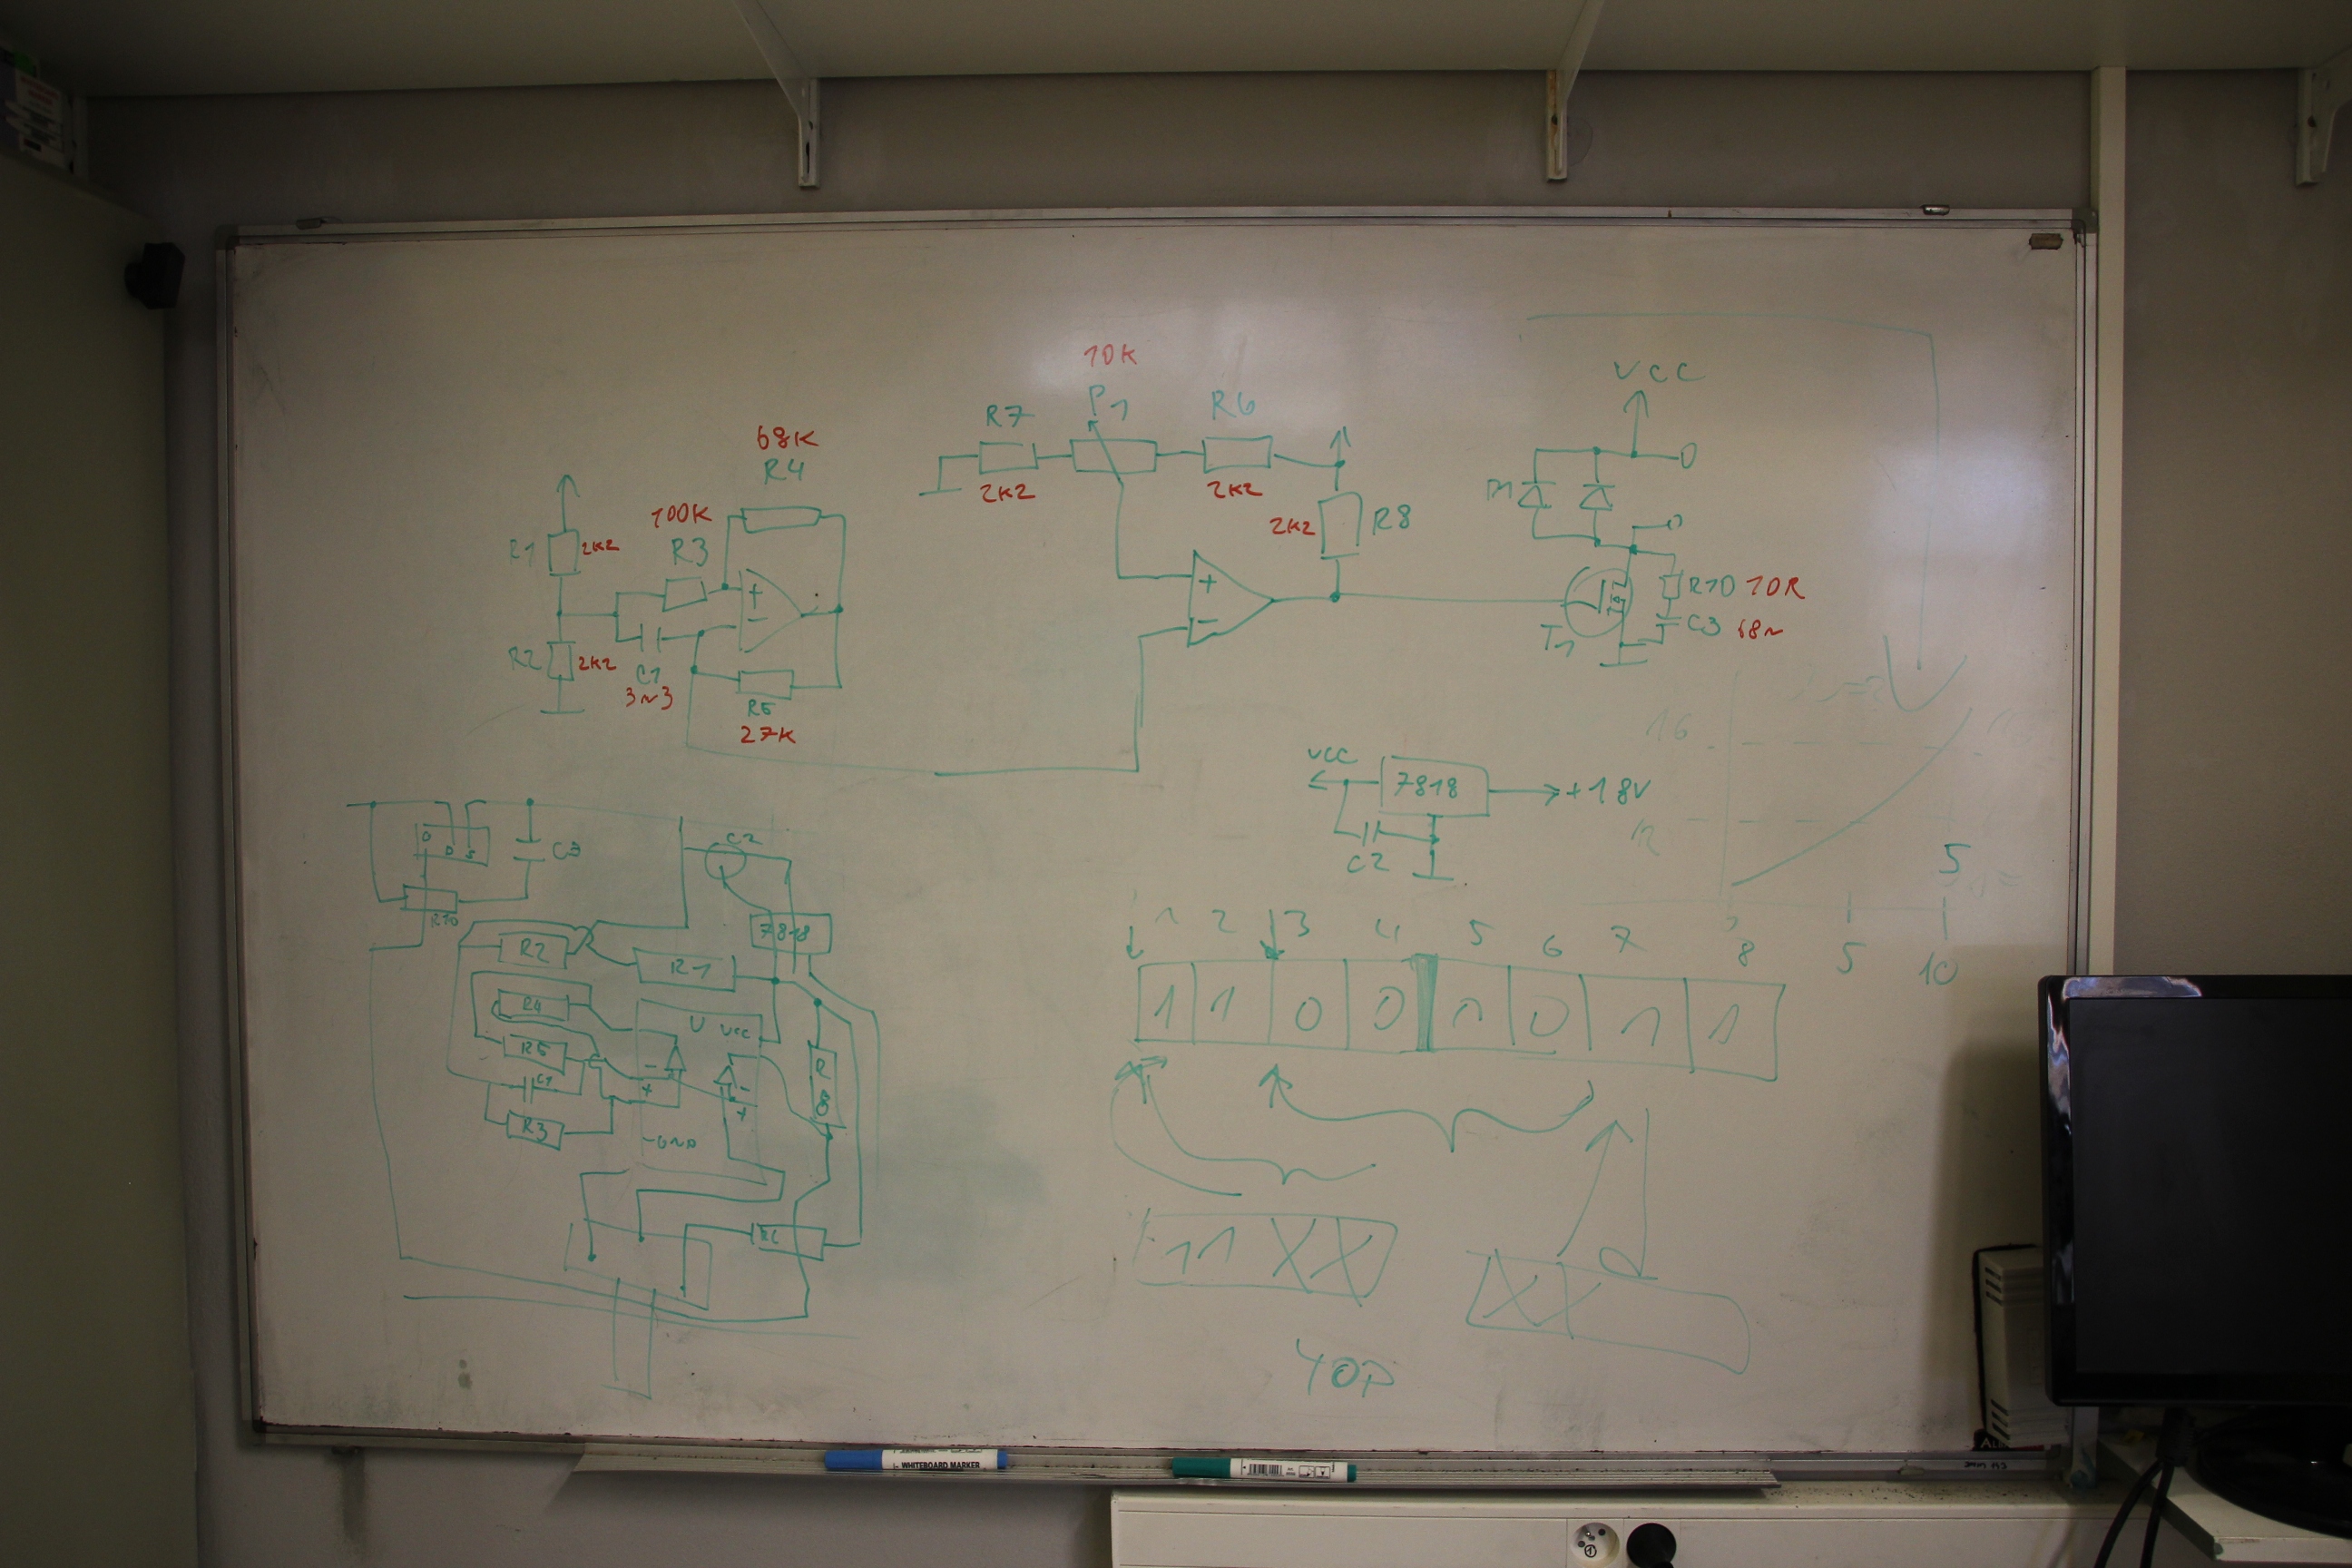 10K
VCC
R7
P1
R6
68K
R4
2K2
2K2
100K
R3
2K2
R8
R1
2K2
+
-
+
-
R10
10R
C3
68n
T1
R2
2K2
C1
3n3
R5
27K
16
VCC
7818
+18V
C2
12
5
C3
D
S
R10
C2
7818
R2
R1
R4
U
VCC
R5
C1
R3
-
+
-
+
R8
-GND
1 2 3 4 5 6 7 8
5
10
1 1 0 0 1 0 1 1
1 1 X X
X X
WHITEBOARD MARKER